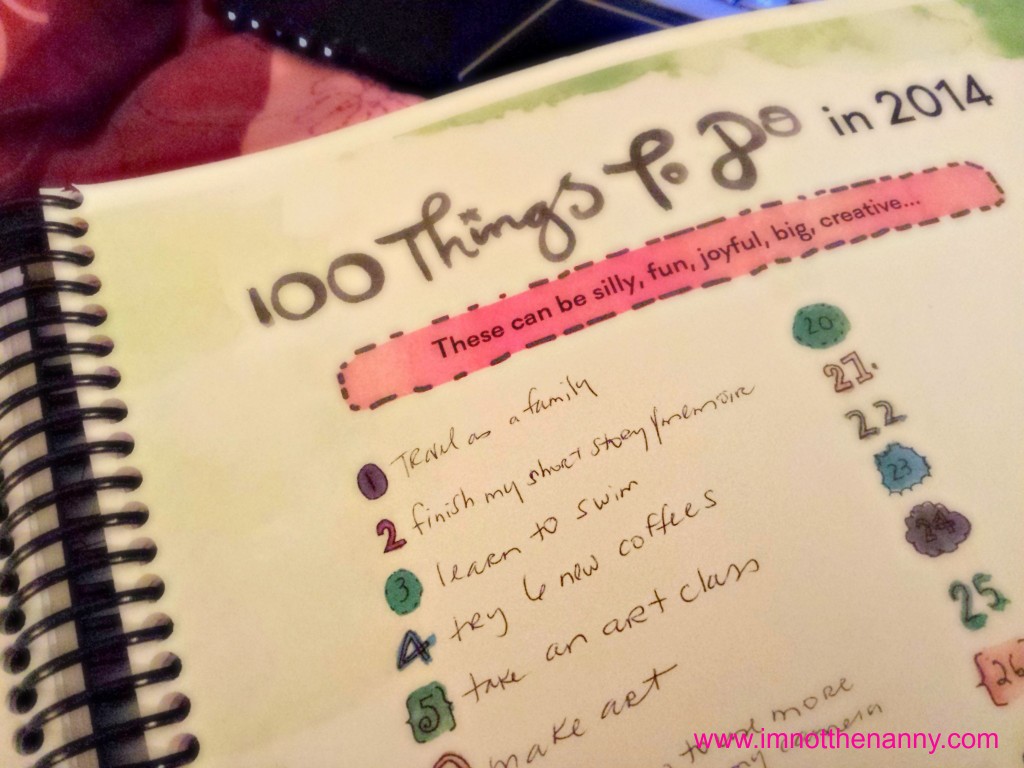 100 Things To Do in 2014
These can be silly, fun, joyful, big, creative...
1 Travel as a family
2 finish my short story/memoir
3 learn to swim
4 try 6 new coffees
5 take an art class
make art
more
my camera
20
21.
22
23
24
25
26
www.imnotthenanny.com